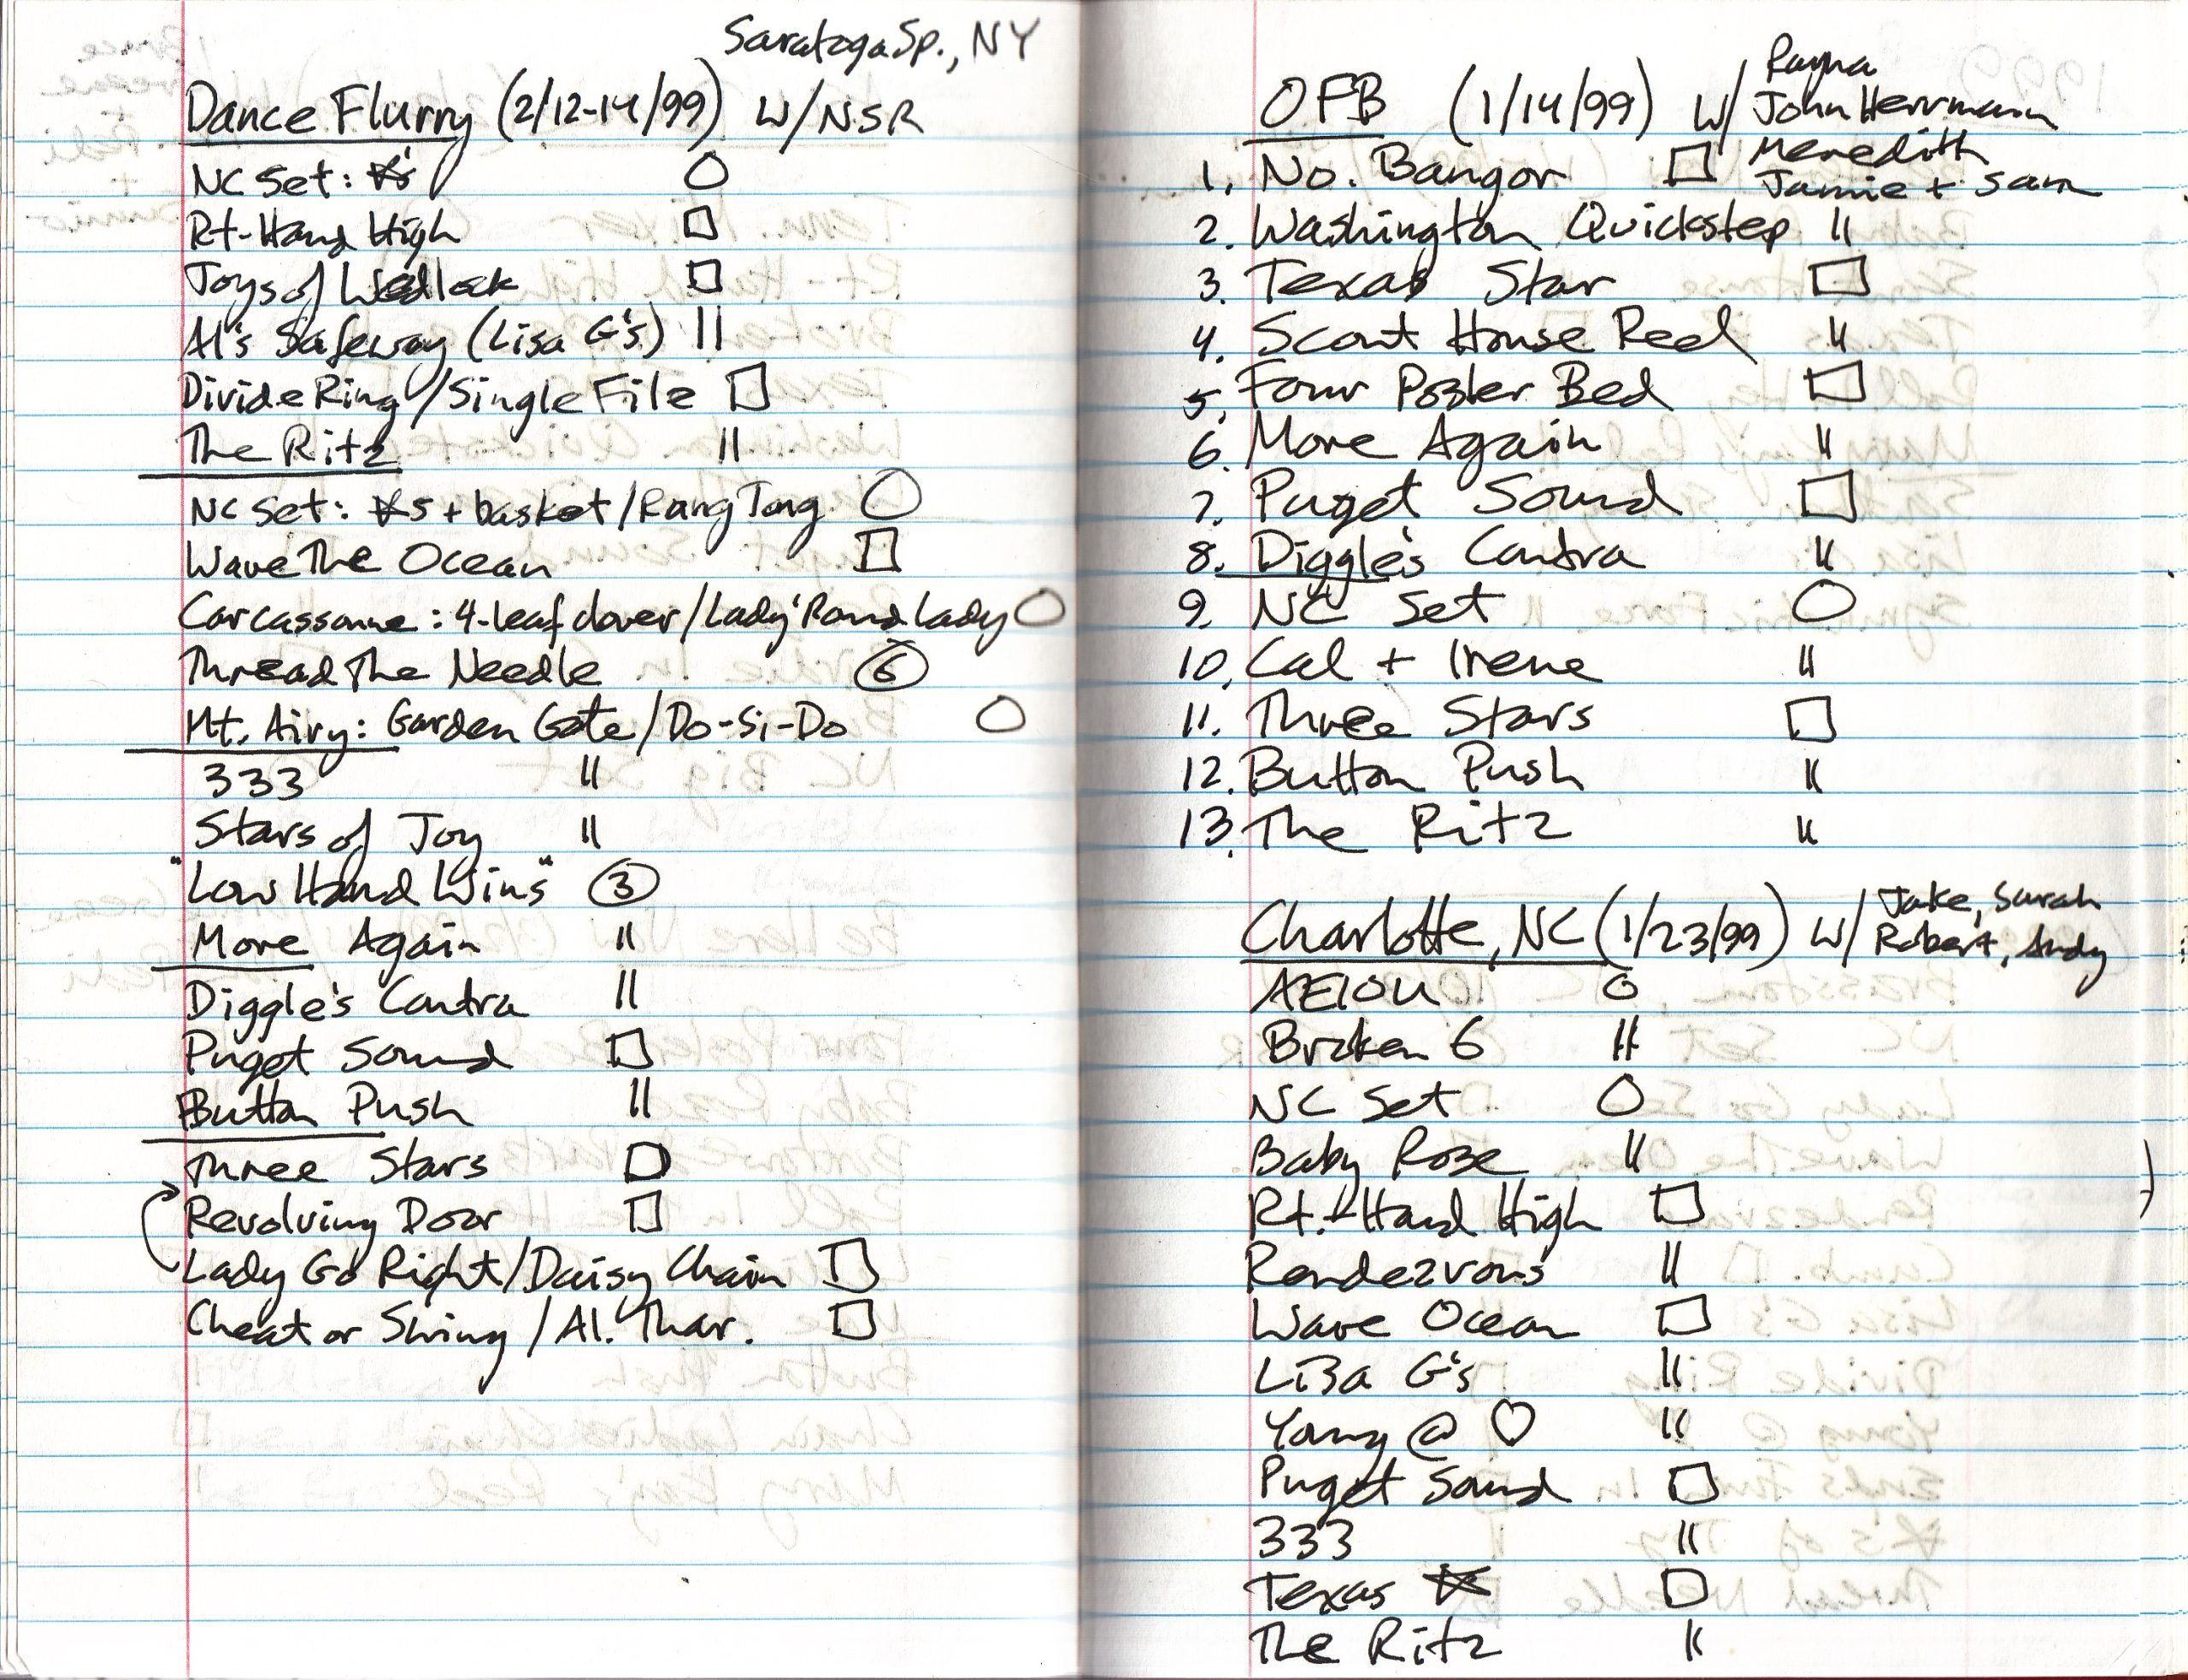 Saratoga Sp., NY
Dance Flurry (2/12-14/99) w/NSR
NC Set: ☆'s ○
Rt-Hand High □
Joys of Wedlock □
Al's Safeway (Lisa G's) ||
Divide Ring/Single File □
The Ritz ||
NC Set: ☆s + basket/Rang Tang ○
Wave The Ocean □
Carcassonne: 4-leaf clover/Lady 'Round Lady ○
Thread The Needle ⑥
Mt. Airy: Garden Gate/Do-Si-Do ○
333 ||
Stars of Joy ||
"Low Hand Wins" ③
More Again ||
Diggle's Contra ||
Puget Sound □
Button Push ||
Three Stars □
Revolving Door □
Lady Go Right/Daisy Chain □
Cheat or Swing/Al. Thar. □
OFB (1/14/99) w/ Rayna
John Herrmann
Meredith
Jamie + Sam
1. No. Bangor □
2. Washington Quickstep ||
3. Texas Star □
4. Scout House Reel ||
5. Four Poster Bed □
6. More Again ||
7. Puget Sound □
8. Diggle's Contra ||
9. NC Set ○
10. Cal + Irene ||
11. Three Stars □
12. Button Push ||
13. The Ritz ||
Charlotte, NC (1/23/99) w/ Jake, Sarah
Robert, Andy
AEIOU ○
Broken 6 ||
NC Set ○
Baby Rose ||
Rt.-Hand High □
Rendezvous ||
Wave Ocean □
Lisa G's ||
Young @ ♡ ||
Puget Sound □
333 ||
Texas ☆ □
The Ritz ||